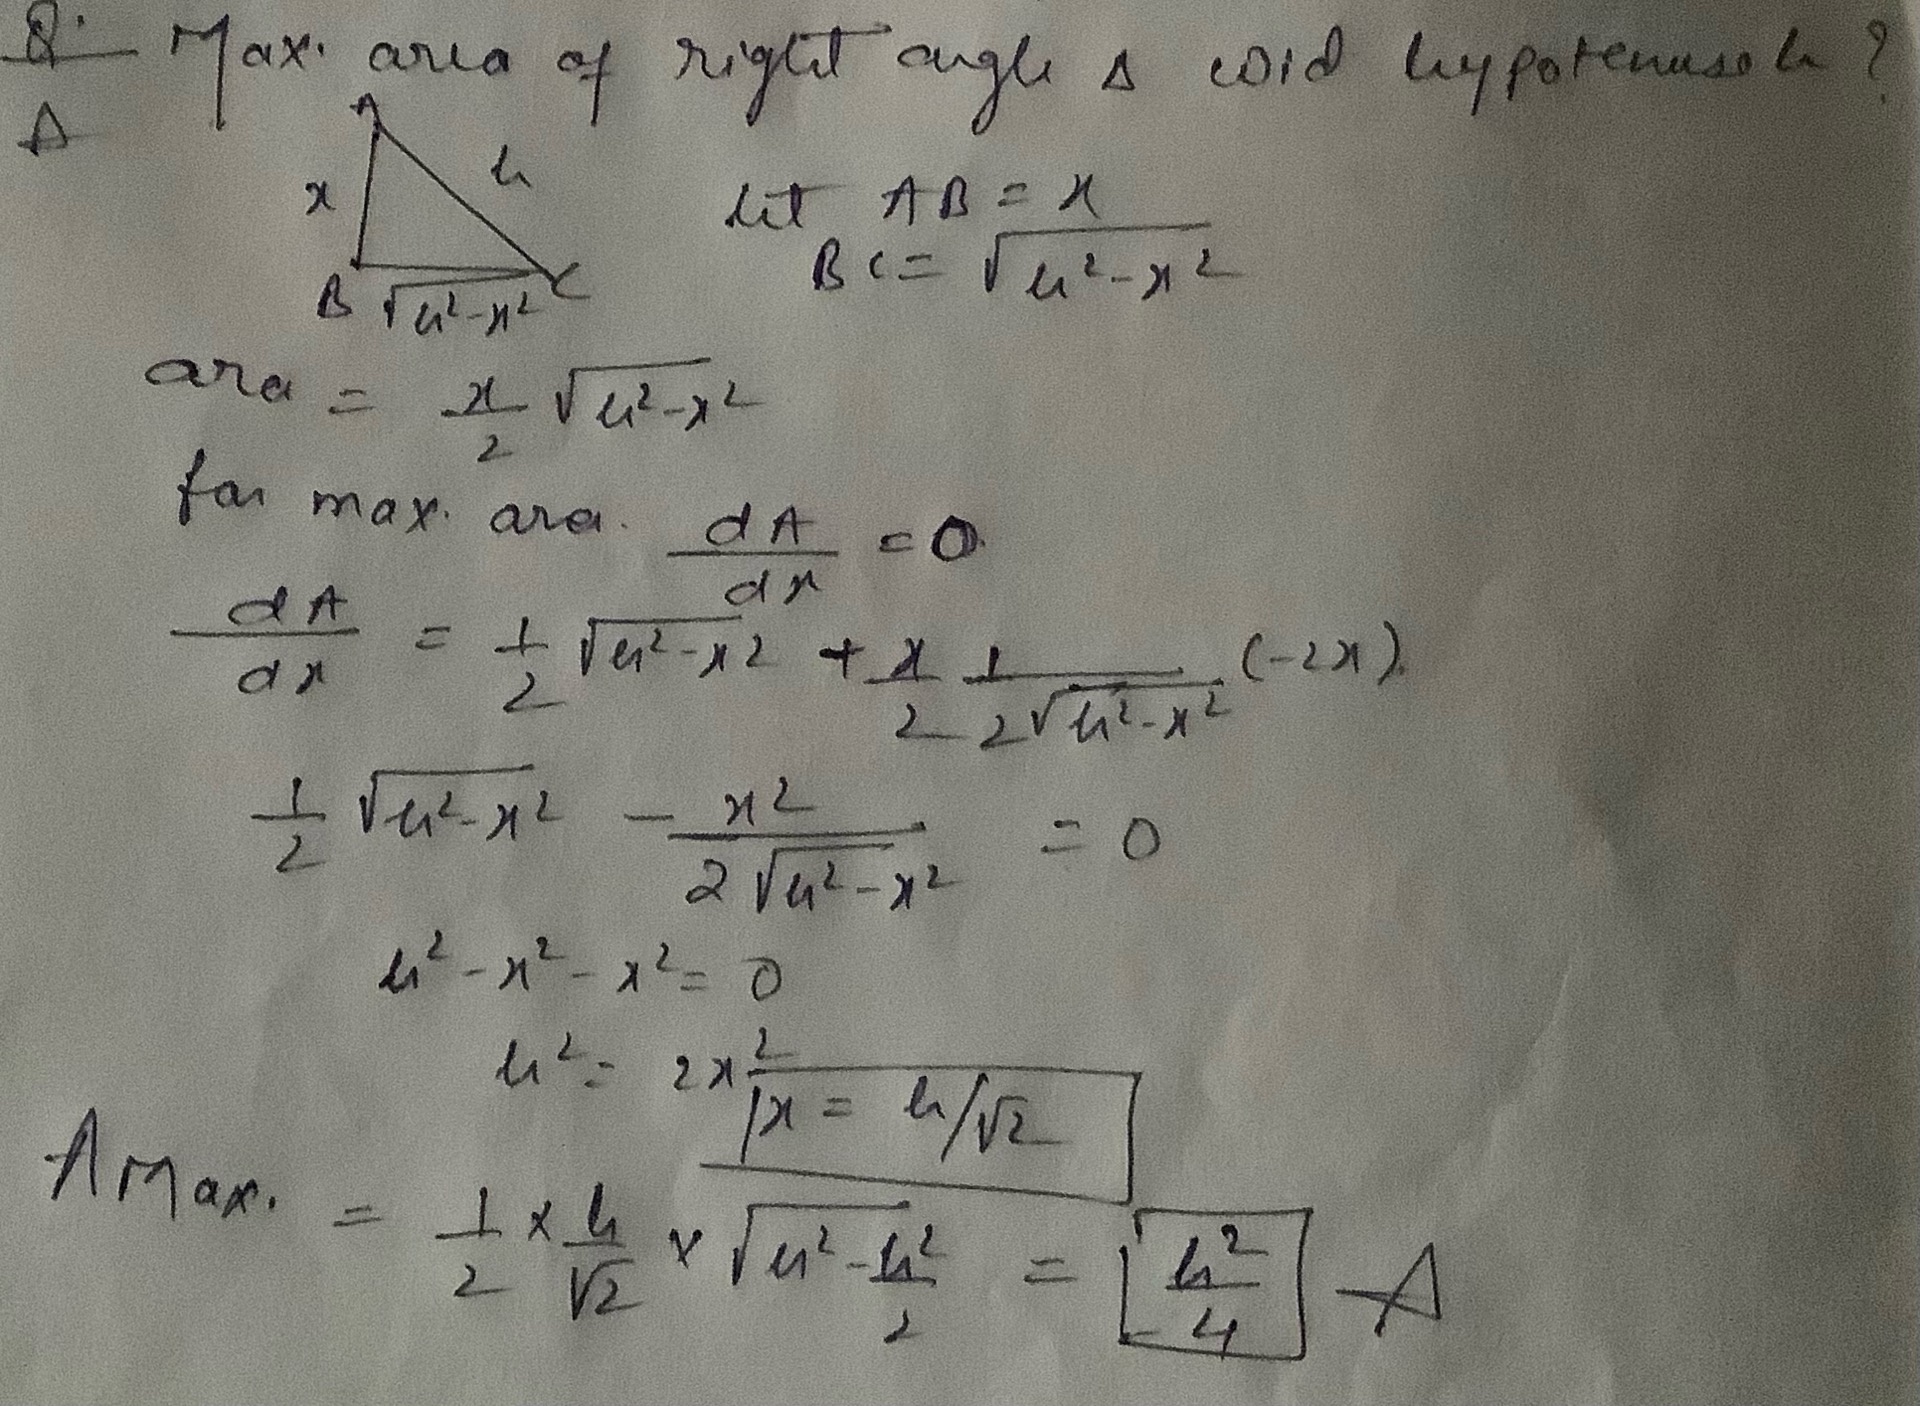 Q. Max. area of right angle Δ wid hypotenuse h?
A
A
x h
B √h²-x² C
let AB = x
BC = √h²-x²
area = x/2 √h²-x²
for max. area. dA/dx = 0
dA/dx = 1/2 √h²-x² + x/2 1/2√h²-x² (-2x).
1/2 √h²-x² - x²/2√h²-x² = 0
h²-x²-x² = 0
h² = 2x²
x = h/√2
A Max. = 1/2 × h/√2 × √h²-h²/2 = h²/4 A